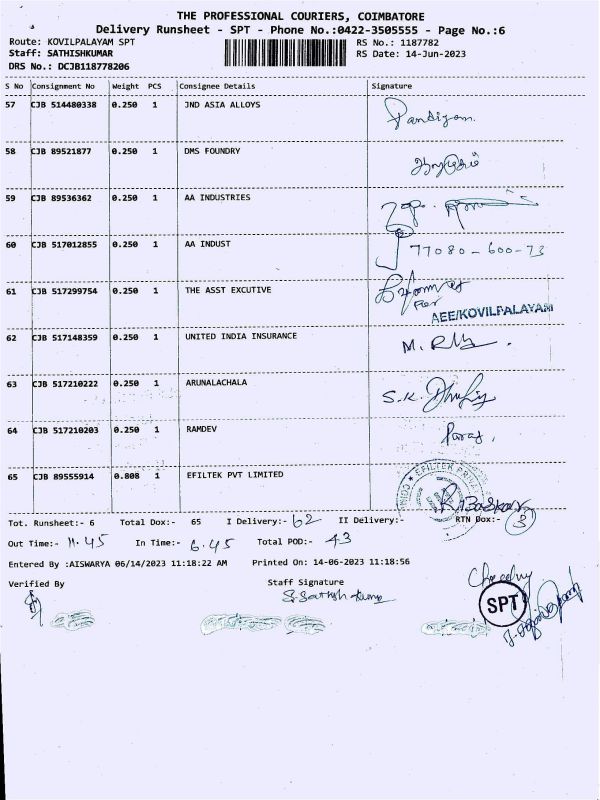 THE PROFESSIONAL COURIERS, COIMBATORE
Delivery Runsheet - SPT - Phone No.:0422-3505555 - Page No.:6
Route: KOVILPALAYAM SPT RS No.: 1187782
Staff: SATHISHKUMAR RS Date: 14-Jun-2023
DRS No.: DCJB118778206
S No Consignment No Weight PCS Consignee Details Signature
57 CJB 514480338 0.250 1 JND ASIA ALLOYS Pandiyan.
58 CJB 89521877 0.250 1 DMS FOUNDRY
59 CJB 89536362 0.250 1 AA INDUSTRIES
60 CJB 517012855 0.250 1 AA INDUST 77080-600-73
61 CJB 517299754 0.250 1 THE ASST EXCUTIVE
For
AEE/KOVILPALAYAM
62 CJB 517148359 0.250 1 UNITED INDIA INSURANCE
63 CJB 517210222 0.250 1 ARUNALACHALA
64 CJB 517210203 0.250 1 RAMDEV
65 CJB 89555914 0.808 1 EFILTEK PVT LIMITED EFILTEK
R. Baskar
Tot. Runsheet:- 6 Total Dox:- 65 I Delivery:- 62 II Delivery:- RTN Dox:- 3
Out Time:- 11.45 In Time:- 6.45 Total POD:- 43
Entered By :AISWARYA 06/14/2023 11:18:22 AM Printed On: 14-06-2023 11:18:56
Verified By Staff Signature
S. Sathish kumar
SPT